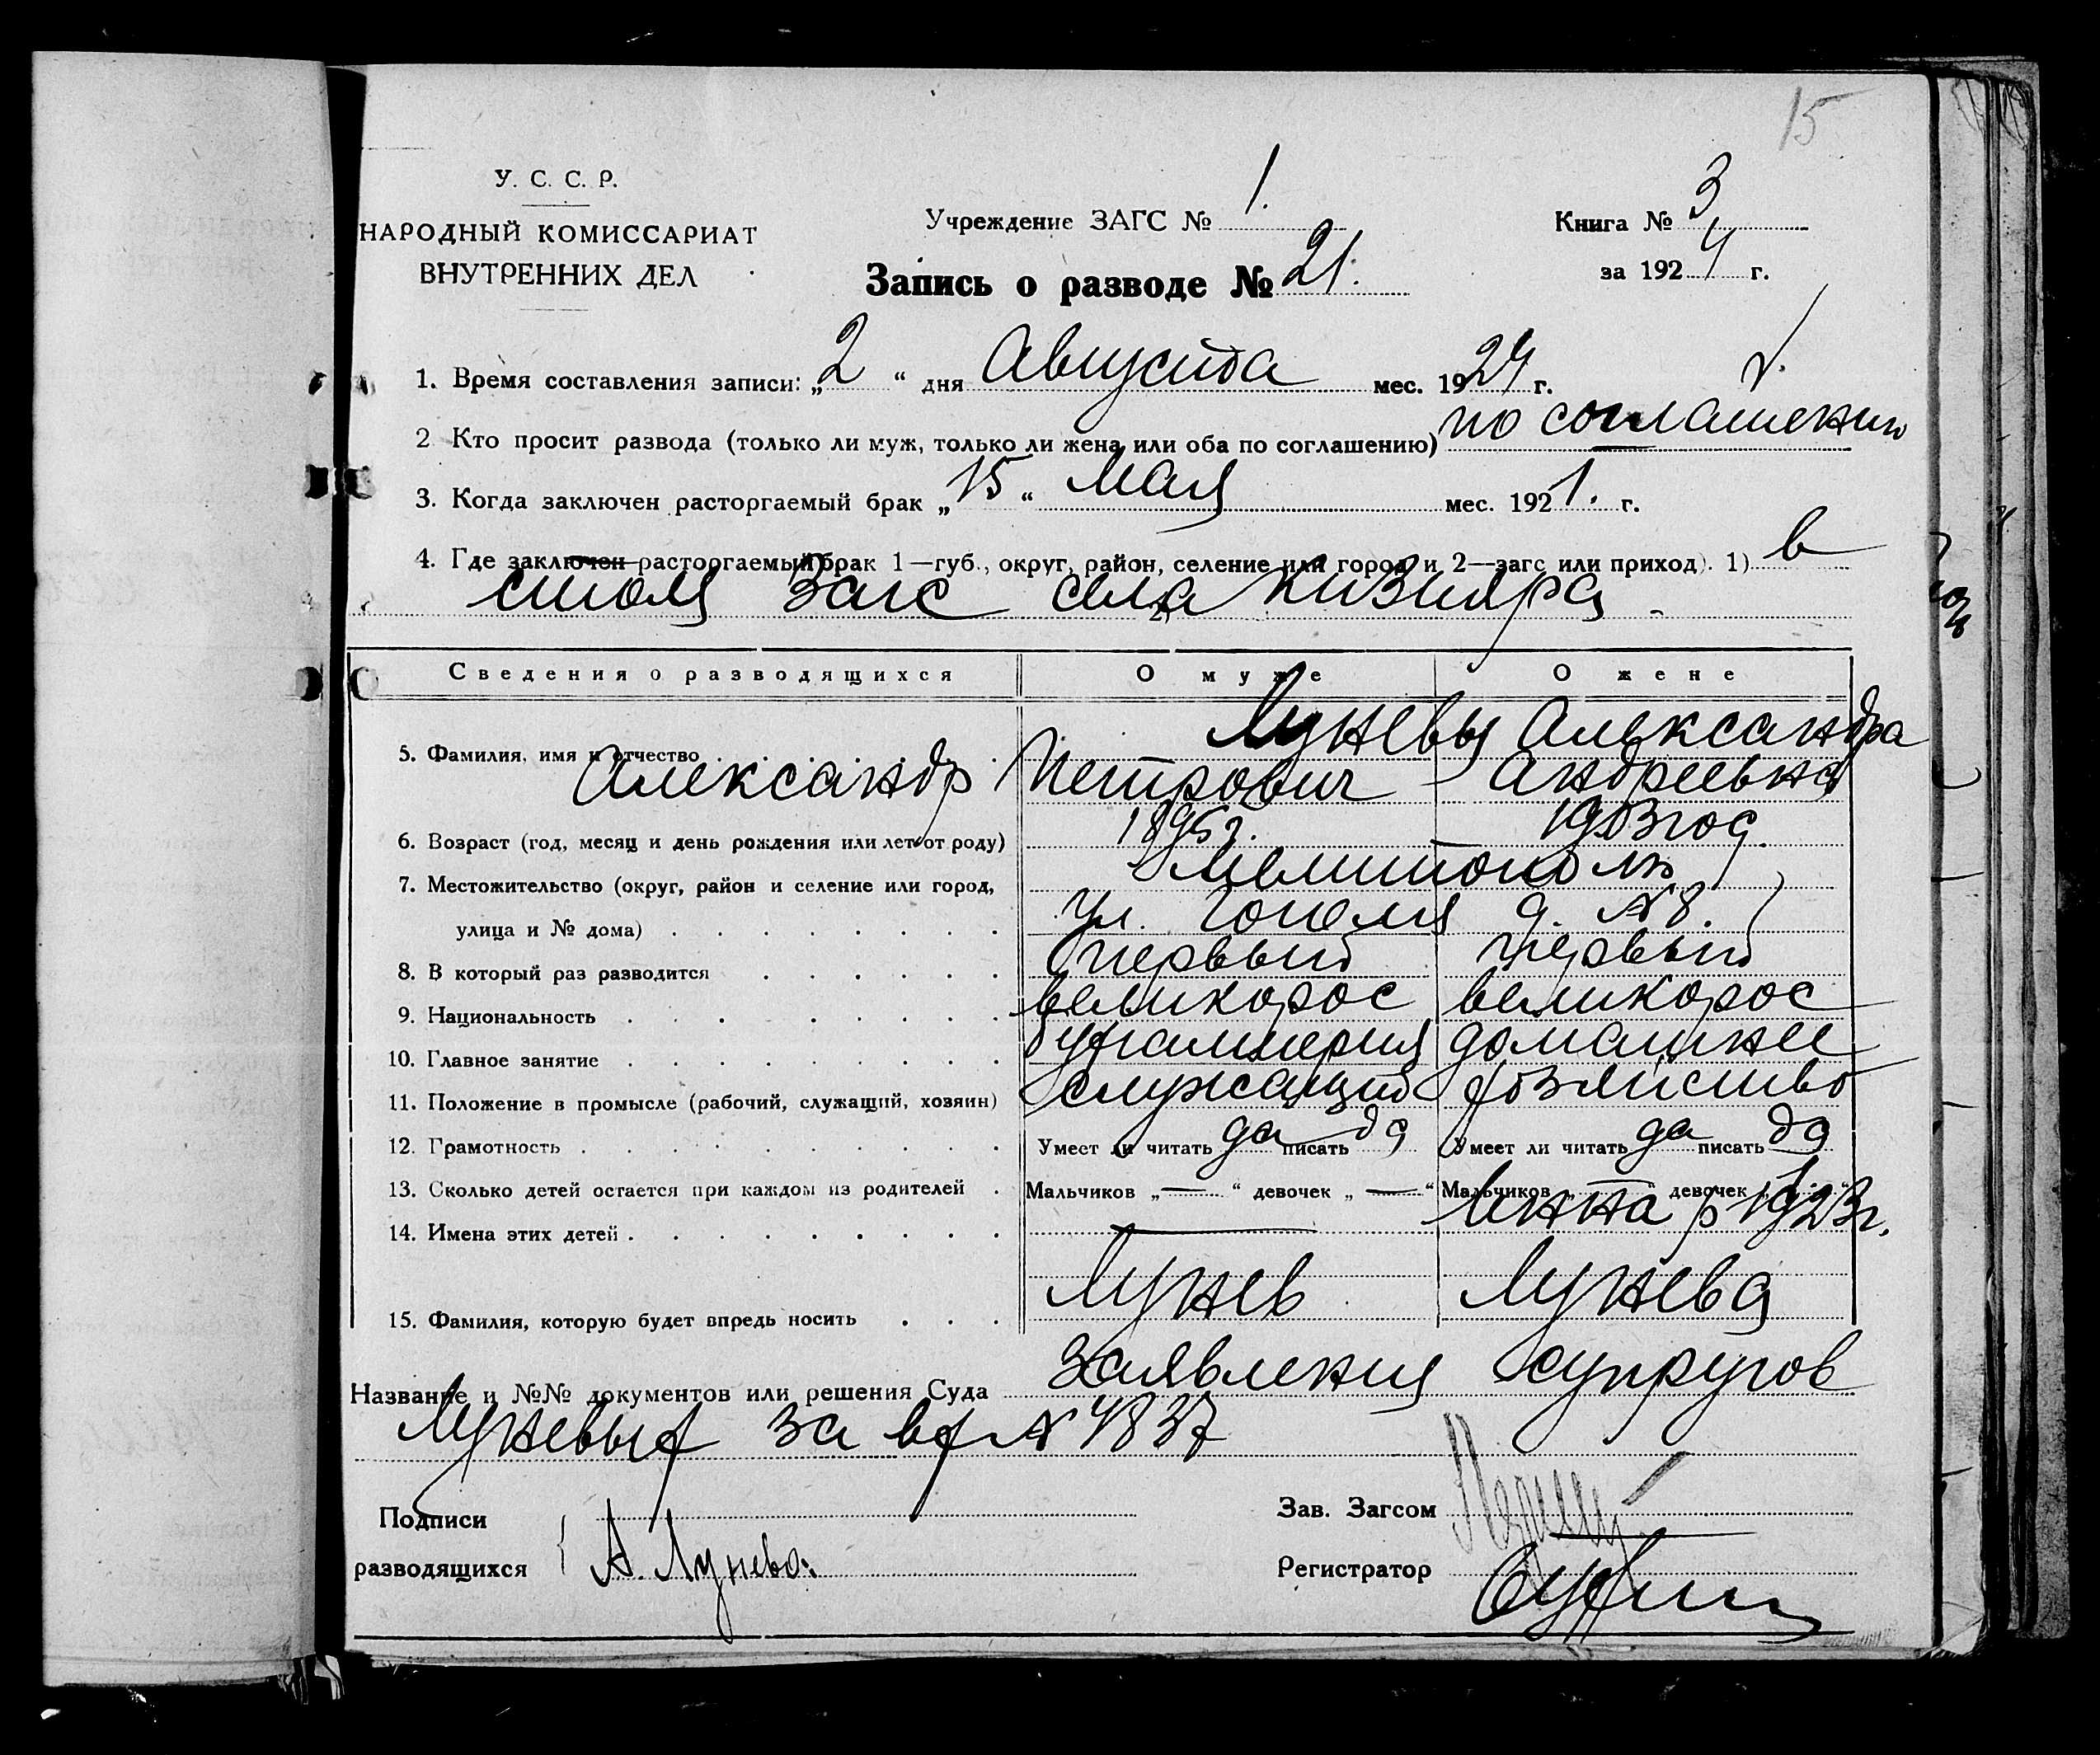 15
У. С. С. Р.
НАРОДНЫЙ КОМИССАРИАТ
ВНУТРЕННИХ ДЕЛ
Учреждение ЗАГС № 1.
Книга № 3
за 1924 г.
Запись о разводе № 21.
1. Время составления записи: „2“ дня Августа мес. 1924 г.
2 Кто просит развода (только ли муж, только ли жена или оба по соглашению) по соглашению
3. Когда заключен расторгаемый брак „15“ Мая мес. 1921. г.
4. Где заключен расторгаемый брак 1—губ., округ, район, селение или город и 2—загс или приход). 1) в
столя Загс села Кизияра 2)
Сведения о разводящихся О муже О жене
Луневы Александра
5. Фамилия, имя и отчество
Александр Петрович Андреевна
6. Возраст (год, месяц и день рождения или лет от роду) 1895 г. 1903 год
7. Местожительство (округ, район и селение или город, Мелитополь
улица и № дома) ул. Гоголя д. № 8.
8. В который раз разводится первый первый
9. Национальность великорос великорос
10. Главное занятие бухгалтерия домашнее
11. Положение в промысле (рабочий, служащий, хозяин) служащий хозяйство
12. Грамотность Умеет ли читать да писать да Умеет ли читать да писать да
13. Сколько детей остается при каждом из родителей Мальчиков „—“ девочек „—“ Мальчиков „—“ девочек „1“
14. Имена этих детей — р 1923 г.
15. Фамилия, которую будет впредь носить Лунев Лунева
Название и №№ документов или решения Суда Заявления супругов
Луневых за вх № 4837
Подписи
разводящихся А. Лунева
Зав. Загсом
Регистратор